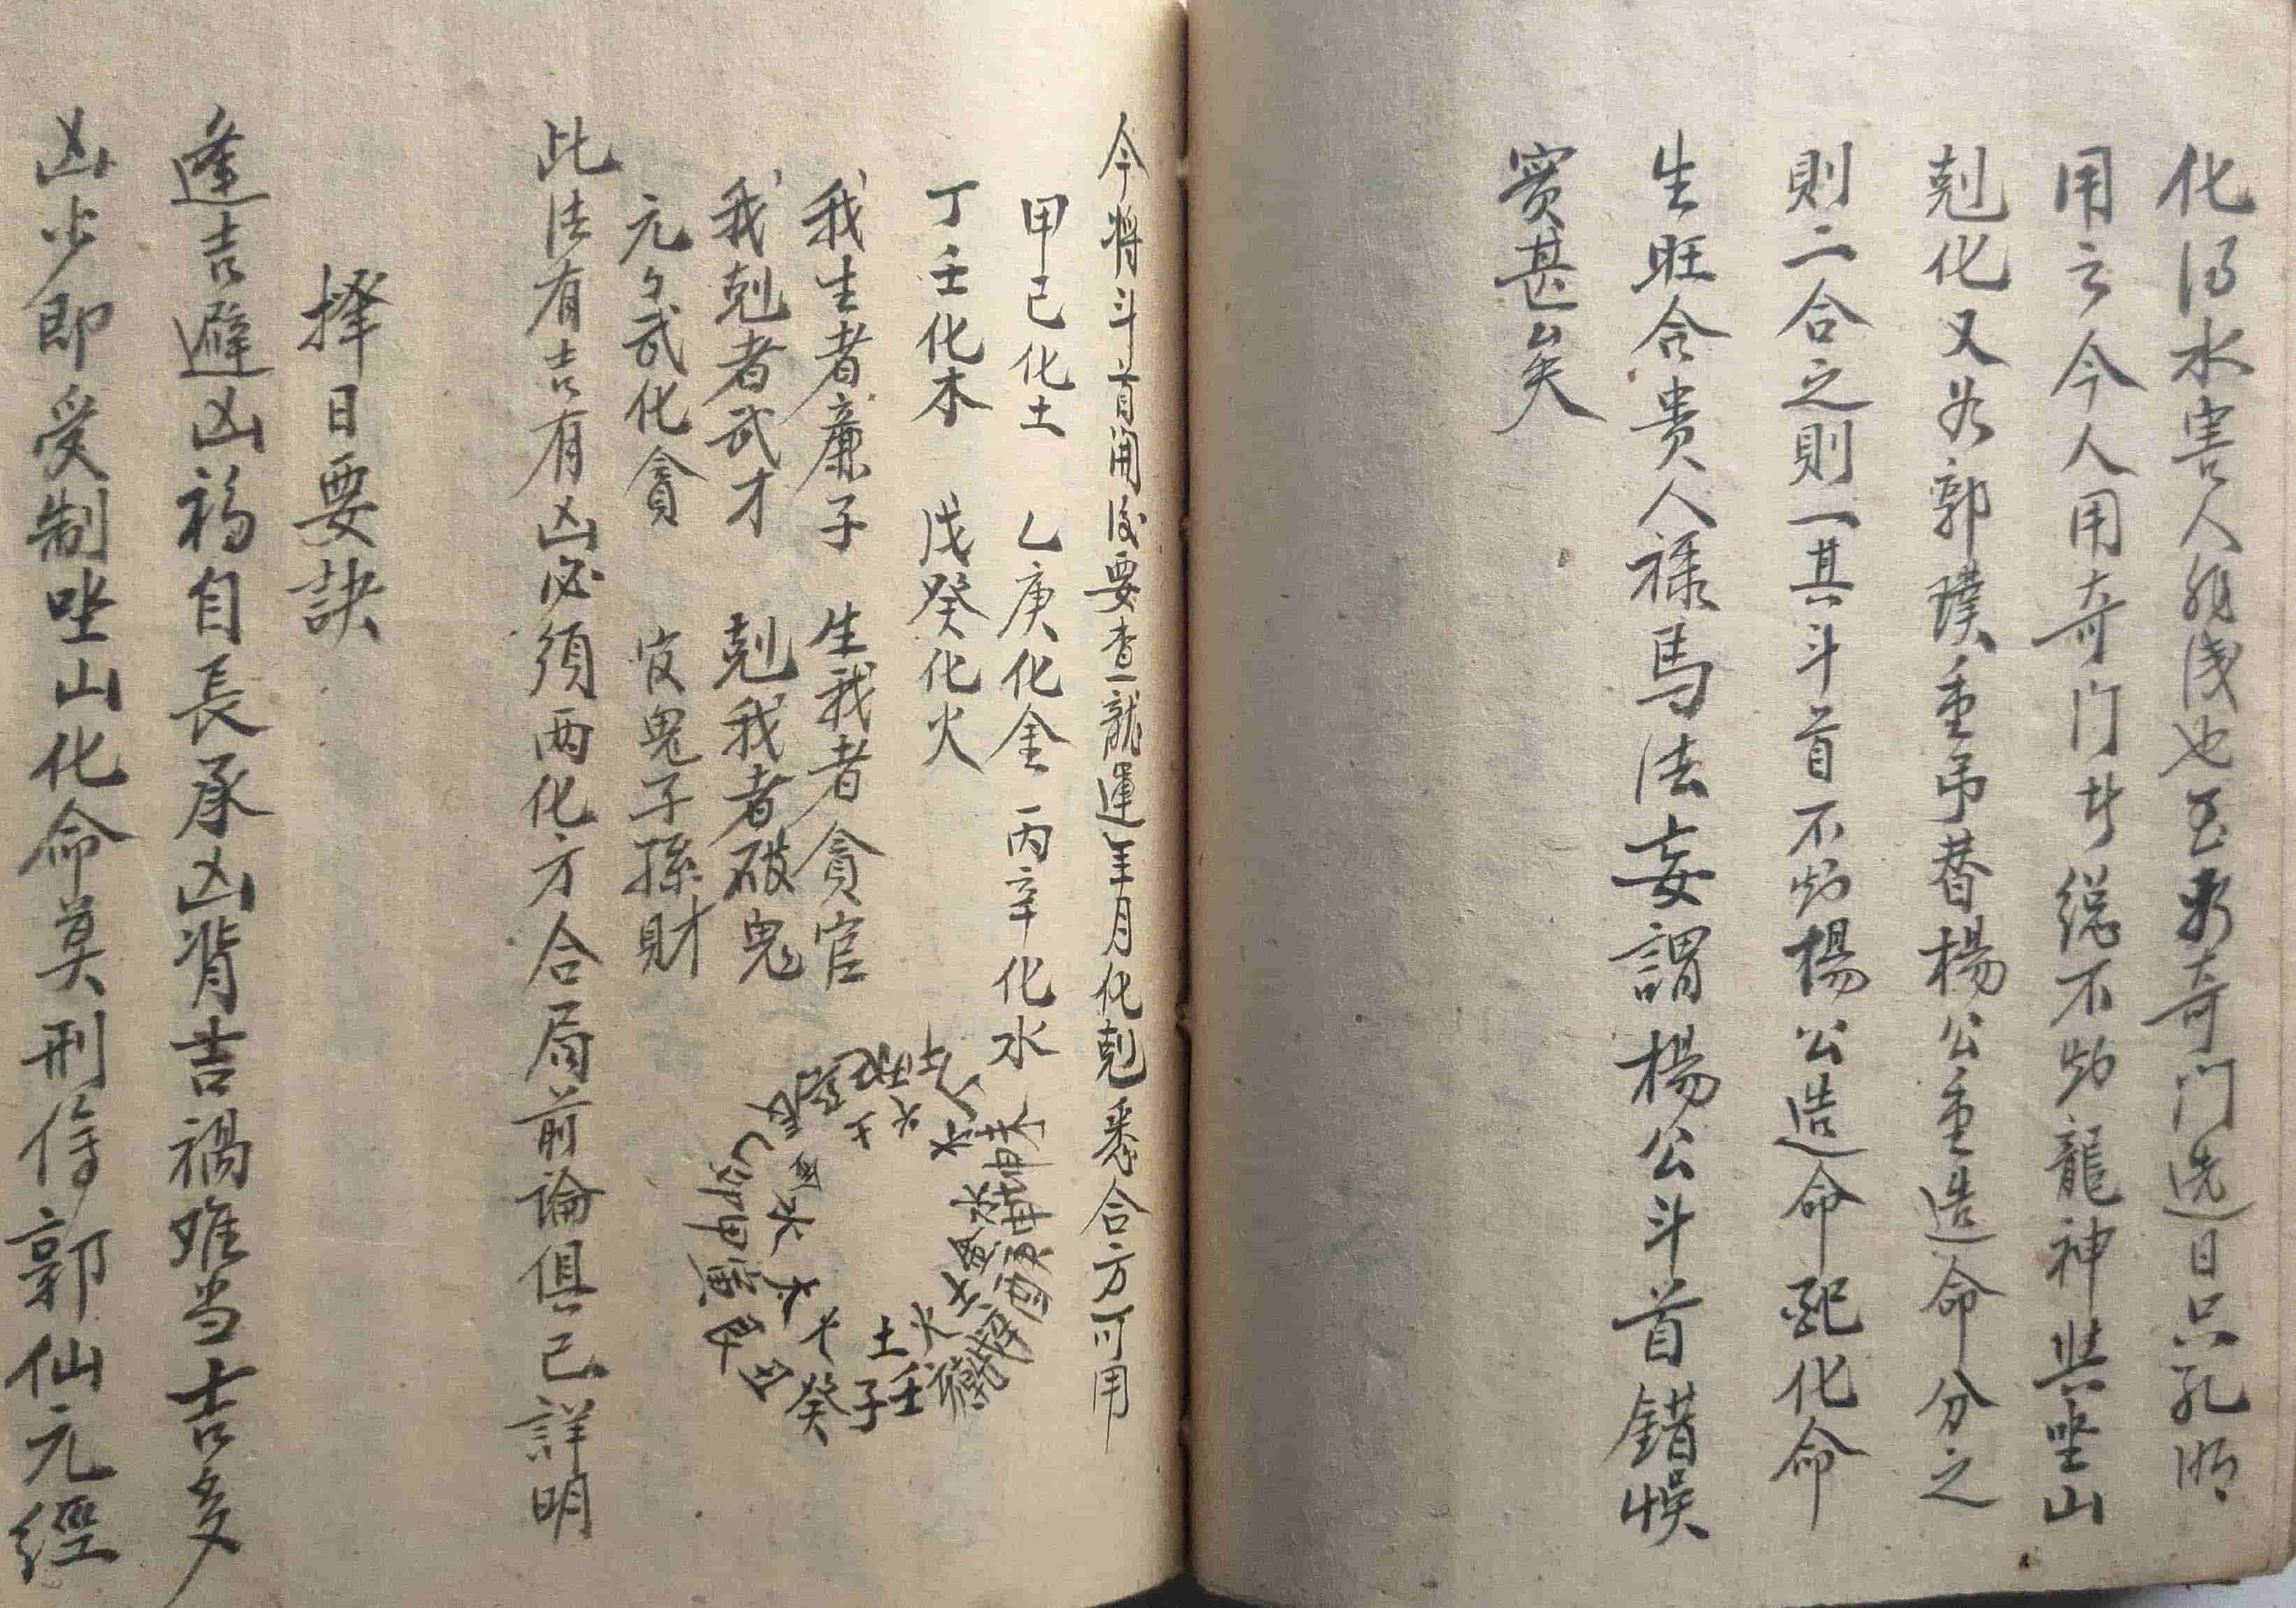 化得水害人非浅也至於奇门选日只孔明
用之今人用奇门者総不如龍神與坐山
剋化又如郭璞重吊替楊公重造命分之
則二合之則一其斗首不如楊公造命配化命
生旺合贵人禄馬法妄謂楊公斗首錯悮
实甚矣
今将斗首開後要查龍運年月化剋悉合方可用
甲己化土 乙庚化金 丙辛化水
丁壬化木 戊癸化火
我生者廉子 生我者貪官
我剋者武才 剋我者破鬼
元々武化貪 官鬼子孫財
土 火 水 木 金
壬 子 癸 丑 甲 寅 卯 乙
此法有吉有凶必須両化方合局前論俱已詳明
擇日要訣
逢吉避凶福自長承凶背吉禍难当吉多
凶少即受制坐山化命莫刑傷郭仙元經